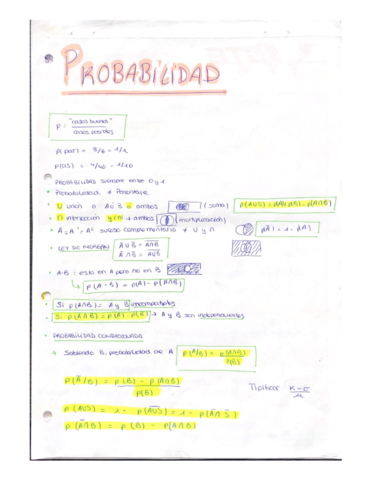 PROBABILIDAD
P = "casos buenos" / casos posibles
p(par) = 3/6 = 1/2
p(as) = 4/40 = 1/10
PROBABILIDAD siempre entre 0 y 1
Probabilidad ≠ Porcentaje
U unión o A o B o ambos (suma) p(AUB) = p(A)+p(B) - p(A∩B)
∩ intersección y/ni → ambos (multiplicación)
Ā = A' = Aᶜ suceso complementario ≠ U y ∩ p(Ā) = 1 - p(A)
LEY DE MORGAN
A - B : está en A pero no en B
p(A - B) = p(A) - p(A∩B)
A y B incompatibles
Si p(A∩B) = p(A) · p(B) → A y B son independientes
PROBABILIDAD CONDICIONADA
Sabiendo B, probabilidad de A p(A/B) = p(A∩B) / p(B)
p(Ā/B) = p(B) - p(A∩B) / p(B)
Tipificar
p(Ā∩B) = p(B) - p(A∩B)